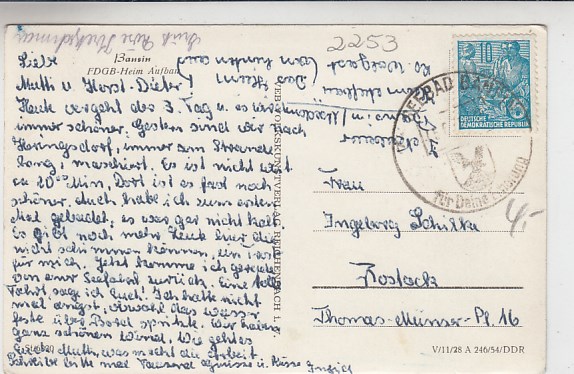 2253
Bansin
FDGB-Heim Aufbau
Liebe
Mutti u. Horst-Dieter!
Heute vergeht der 3. Tag u. es wird
immer schöner. Gestern sind wir nach
Heringsdorf, immer am Strande
lang marschiert. Es ist nicht weit
ca 20 Min. Dort ist es fast noch
schöner. Auch habe ich zum ersten
Mal gebadet, es war gar nicht kalt.
Es gibt noch mehr Leute hier die
nicht schwimmen können, ein Trost
für mich. Jetzt komme ich gerade
von einer Seefahrt zurück. Eine tolle
Fahrt, sag ich Euch. Ich hatte nicht
mal Angst, obwohl das Wasser
feste über Bord spritzte. Wir haben
ganz schönen Wind. Wie geht es
Mutti, was macht die Arbeit
Schreibe bitte mal Tausend Grüsse u. Küsse Ingrid
VEB VOLKSKUNSTVERLAG REICHENBACH I. V.
10
DEUTSCHE
DEMOKRATISCHE REPUBLIK
SEEBAD BANSIN
für Deine Erholung
Frau
Ingeborg Schilka
Rostock
Thomas-Münzer-Pl. 16
V/11/28 A 246/54/DDR